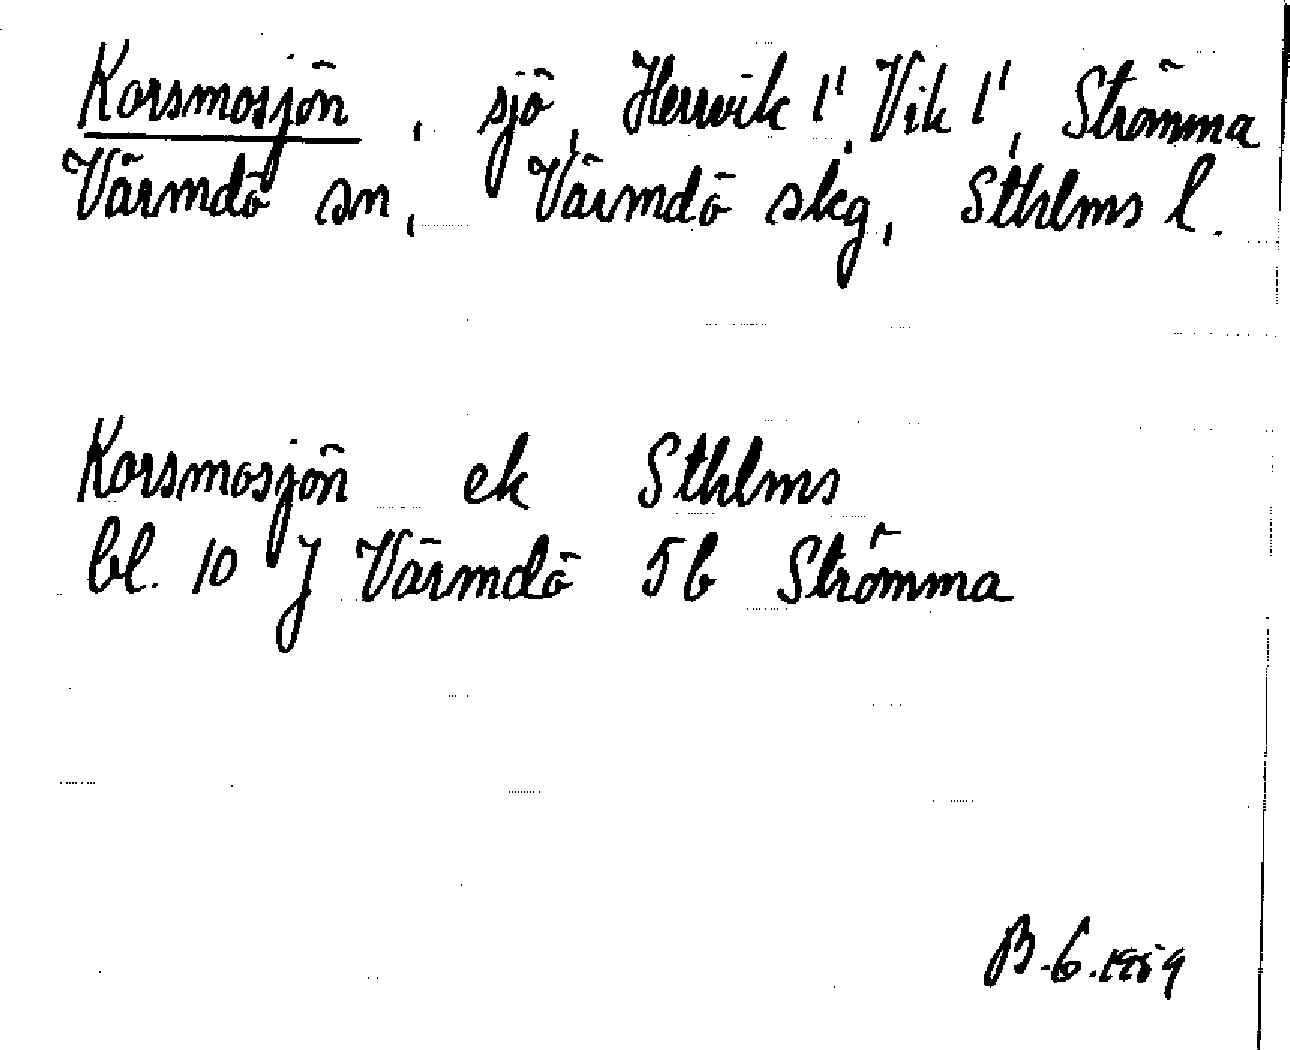 Korsmosjön, sjö, Herrvik 1¹, Vik 1¹, Strömma
Värmdö sn, Värmdö skg, Sthlms l.
Korsmosjön ek Sthlms
bl. 10 J Värmdö 5b Strömma
B.G. 1959